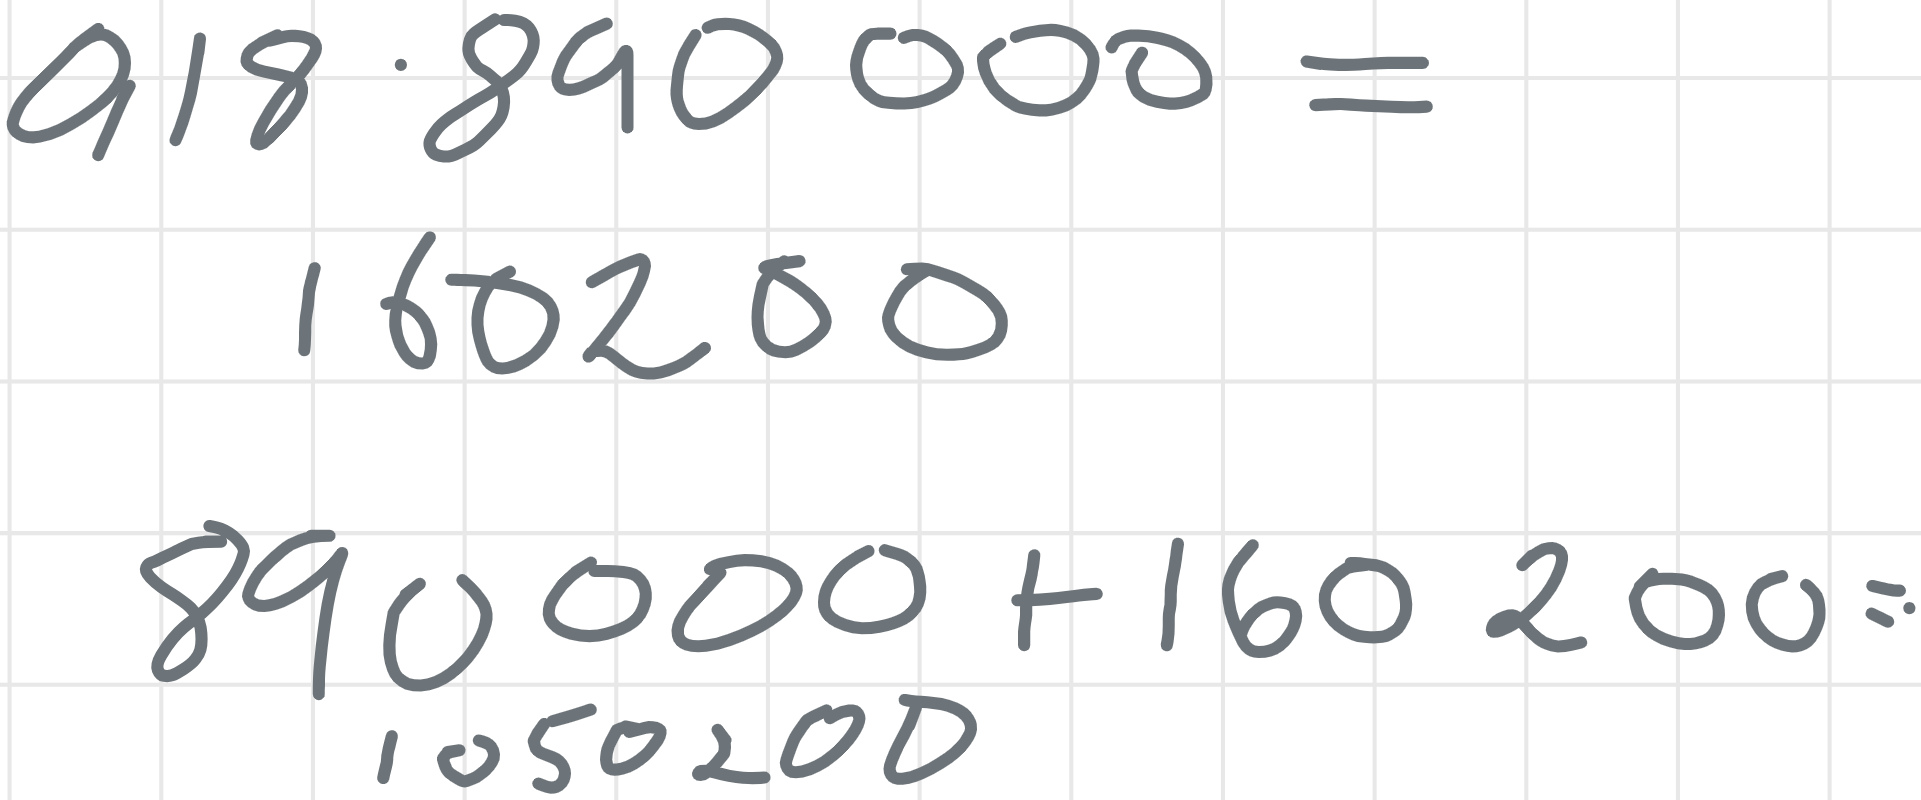 918 · 890 000 =
160200
890 000 + 160 200 =
1050200